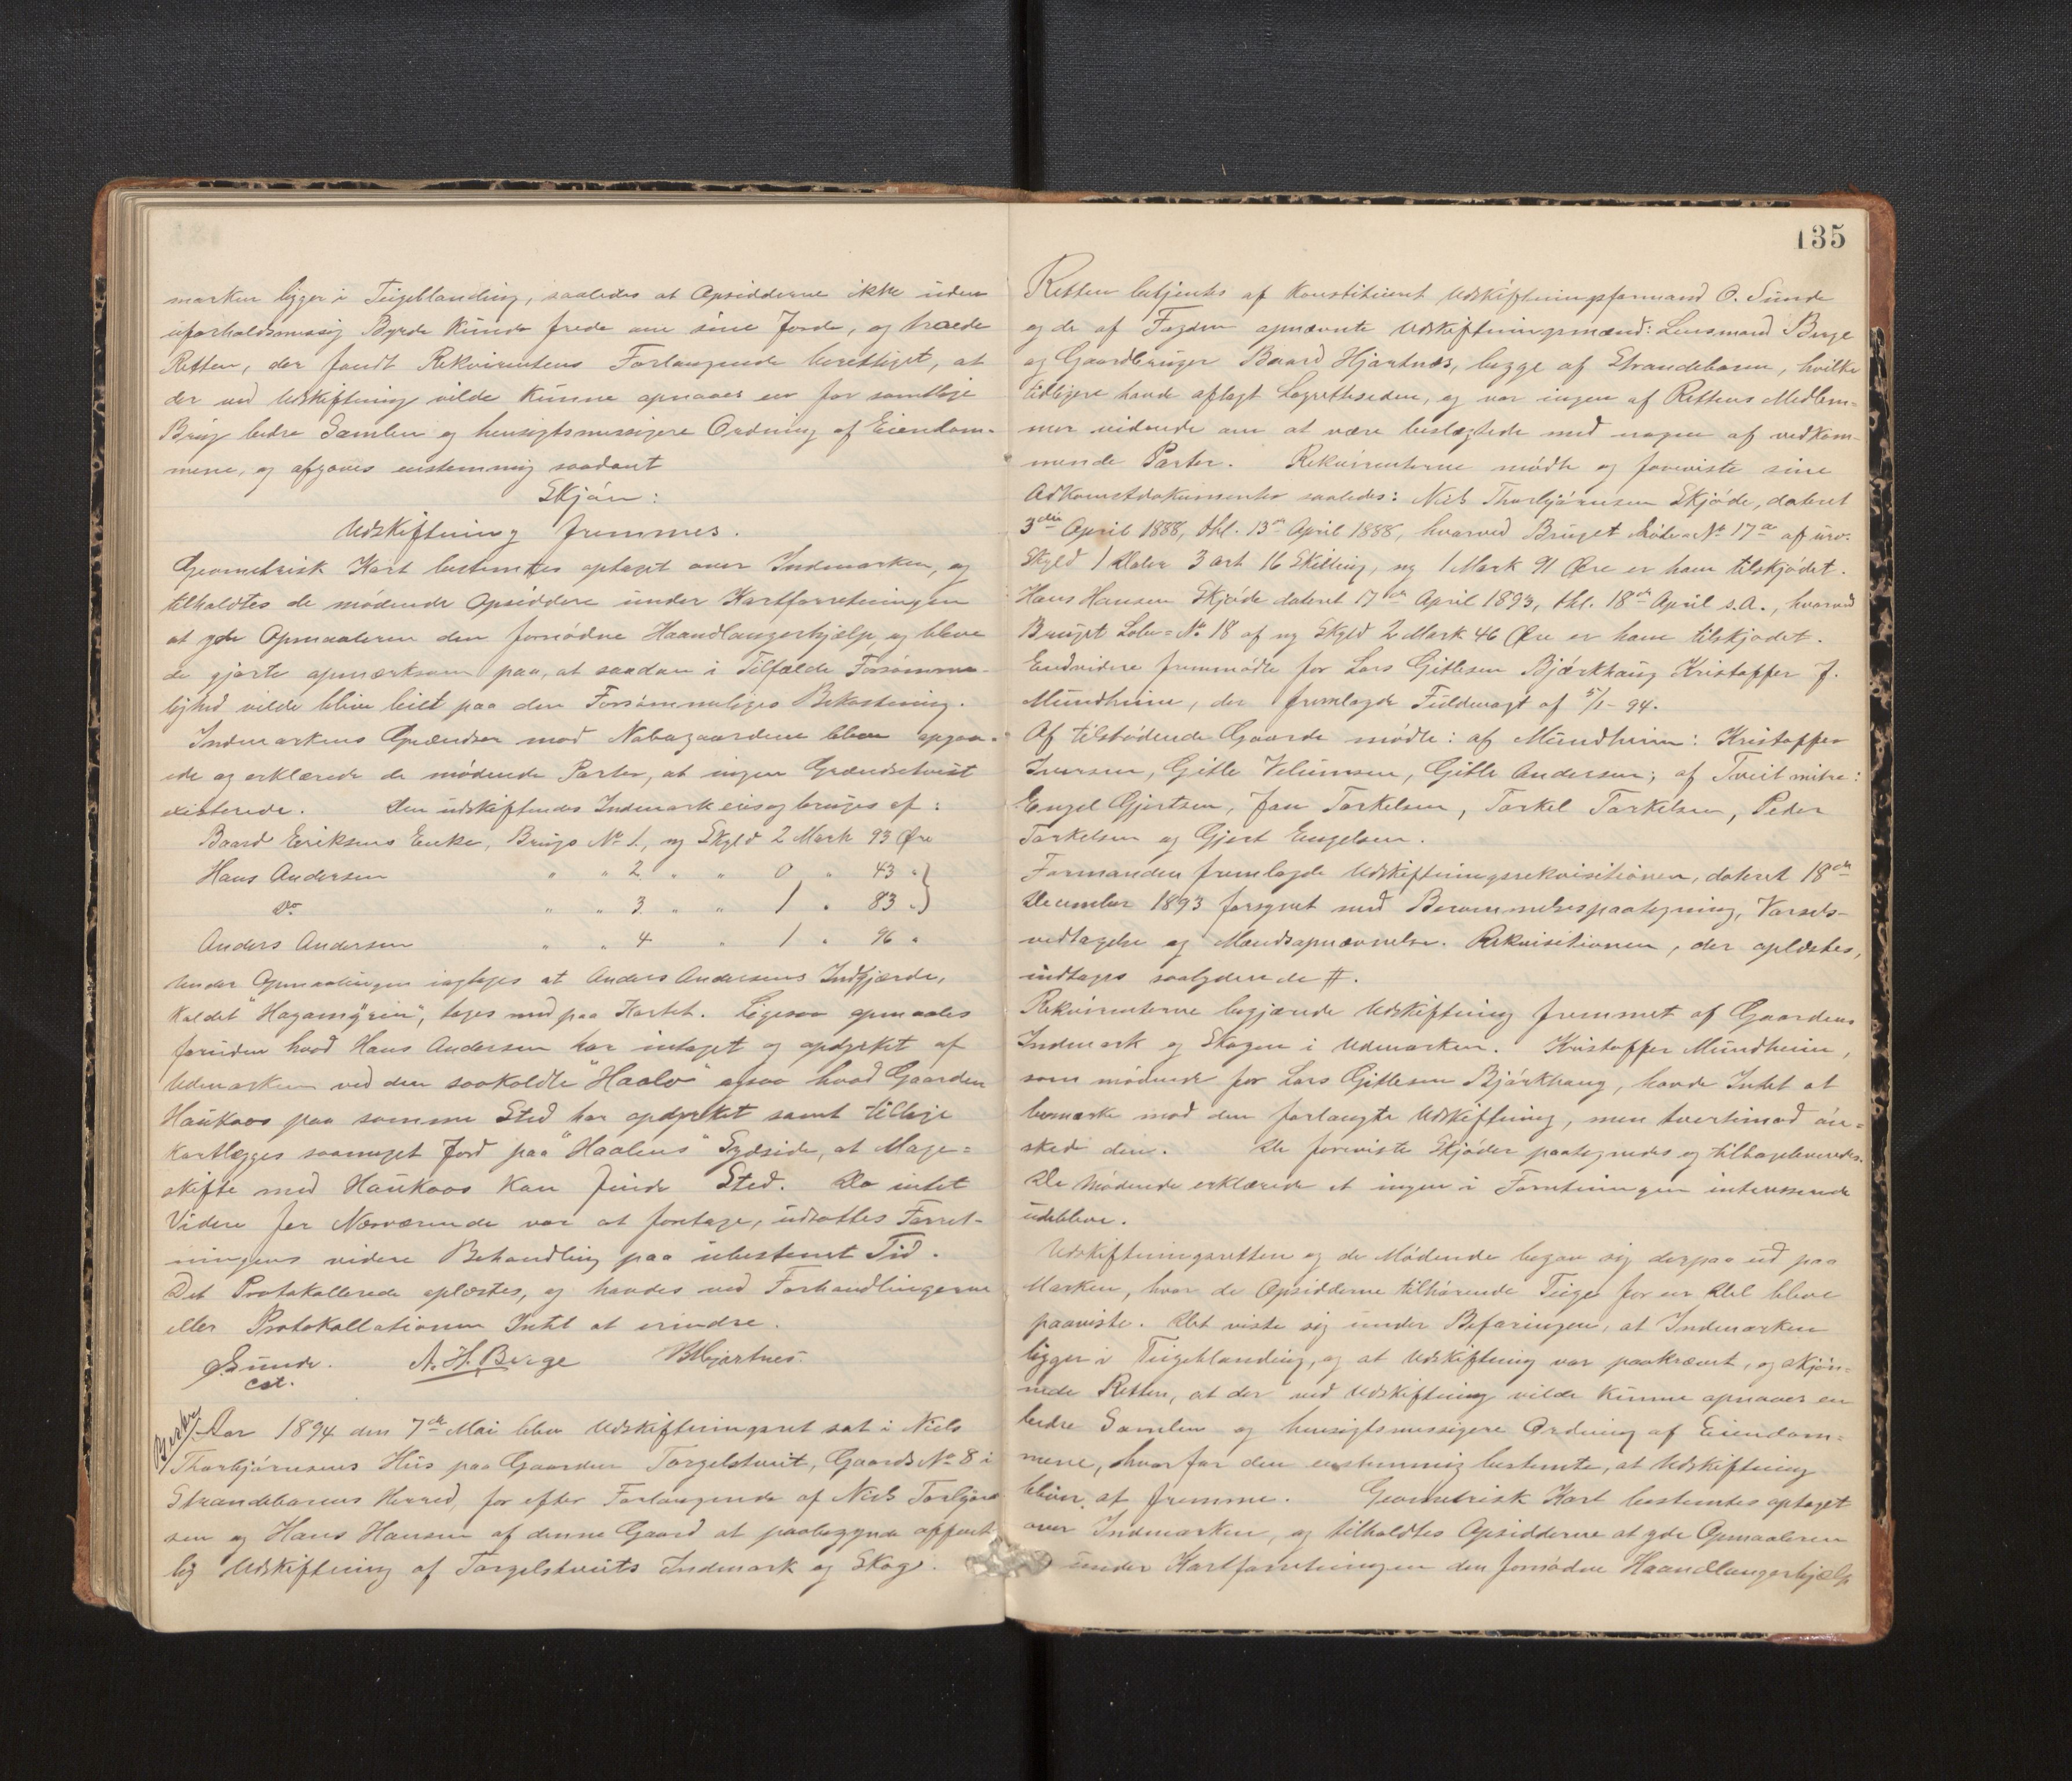 marken ligger i Teigeblanding, saaledes at Opsidderne ikke uden
uforholdsmæssig Byrde kunde frede om sine Jorde, og troede
Retten, der fandt Rekvirentens Forlangende berettiget, at
der ved Udskiftning vilde kunne opnaaes en for samtlige
Brug bedre Samlen og hensigtsmæssigere Ordning af Eiendom-
mene, og afgaves enstemmig saadant
Skjøn:
Udskiftning fremmes.
Geometrisk Kart bestemtes optaget over Indmarken, og
tilholdtes de mødende Opsiddere under Kartforretningen
at yde Opmaaleren den fornødne Haandlangerhjælp og bleve
de gjorte opmærksom paa, at saadan i Tilfælde Forsømme-
lighed vilde blive leiet paa den Forsømmeliges Bekostning.
Indmarkens Grændser mod Nabogaardene bleve opgaa-
ede og erklærede de mødende Parter, at ingen Grændsetvist
existerede. Den udskiftendes Indmark eies og bruges af:
Baard Eriksens Enke, Brugs No 1, ny Skyld 2 Mark 93 Øre
Hans Andersen " " 2 " " 0 " 43 "
Do " " 3 " " 1 " 83 "
Anders Andersen " " 4 " 1 " 96 "
Under Opmaalingen iagtages at Anders Andersens Indgjærde,
kaldet "Hagamyren", tages med paa Kartet. Ligesaa opmaales
foruden hvad Hans Andersen har intaget og opdyrket af
Udmarken ved den saakaldte "Haalo" ogsaa hvad Gaarden
Haukaas paa samme Sted har opdyrket samt tillige
kartlægges saameget Jord paa "Haalens" Sydside, at Mage-
skifte med Haukaas kan finde Sted. Da intet
Videre for Nærværende var at foretage, udsattes Forret-
ningens videre Behandling paa ubestemt Tid.
Det Protokollerede oplæstes, og havdes ved Forhandlingerne
eller Protokollationen Intet at erindre.
O. Sunde. A. H. Berge B Hjartnes.
cst.
Aar 1894 den 7de Mai blev Udskiftningsret sat i Niels
Thorbjørnsens Hus paa Gaarden Torgelstveit, Gaards No 8 i
Strandebarms Herred, for efter Forlangende af Niels Torbjørn-
sen og Hans Hansen af denne Gaard at paabegynde offent-
lig Udskiftning af Torgelstveits Indmark og Skog.
135
Retten betjentes af konstitueret Udskiftningsformand O. Sunde
og de af Fogden opnævnte Udskiftningsmænd: Lensmand Berge
og Gaardbruger Baard Hjartnes, begge af Strandebarm, hvilke
tidligere havde aflagt Lagretteseden, og var ingen af Rettens Medlem-
mer vidende om at være beslægtede med nogen af vedkom-
mende Parter. Rekvirenterne mødte og foreviste sine
Adkomstdokumenter saaledes: Niels Thorbjørnsen Skjøde, dateret
3die April 1888, thl. 13de April 1888, hvorved Bruget Løbe-No 17a af urev.
Skyld 1 Daler 3 ort 16 Skilling, ny 1 Mark 91 Øre er ham tilskjødet.
Hans Hansen Skjøde dateret 17de April 1893, thl. 18de April s.A., hvorved
Bruget Løbe-No 18 af ny Skyld 2 Mark 46 Øre er ham tilskjødet.
Endvidere fremmødte for Lars Gitlesen Bjørkhaug Kristoffer J.
Mundheim, der fremlagde Fuldmagt af 5/1-94.
Af tilstødende Gaarde mødte: af Mundheim: Kristoffer
Iversen, Gitle Gitle Andersen; af Tveit mitre:
Engel Gjertsen, Jan Torkelsen, Torkel Torkelsen, Peder
Torkelsen og Gjert Engelsen.
Formanden fremlagde Udskiftningsrekvisitionen, dateret 18de
December 1893 forsynet med Berammelsespaategning, Varsels-
vedtagelse og Mændsopnævnelse. Rekvisitionen, der oplæstes,
indtages saalydende #.
Rekvirenterne begjærede Udskiftning fremmet af Gaardens
Indmark og Skogen i Udmarken. Kristoffer Mundheim,
som mødende for Lars Gitlesen Bjørkhaug, havde Intet at
bemærke mod den forlangte Udskiftning, men tvertimod øn-
skede den. De foreviste Skjøder paategnedes og tilbageleveredes.
De Mødende erklærede at ingen i Forretningen interesserede
udebleve.
Udskiftningsretten og de Mødende begav sig derpaa ud paa
Marken, hvor de Opsidderne tilhørende Teige for en Del bleve
paaviste. Det viste sig under Befaringen, at Indmarken
ligger i Teigeblanding, og at Udskiftning var paakrævet, og skjøn-
nede Retten, at der ved Udskiftning vilde kunne opnaaes en
bedre Samlen og hensigtsmæssigere Ordning af Eiendom-
mene, hvorfor den enstemmig bestemte, at Udskiftning
bliver at fremme. Geometrisk Kart bestemtes optaget
over Indmarken, og tilholdtes Opsidderne at yde Opmaaleren
under Kartforretningen den fornødne Haandlangerhjælp